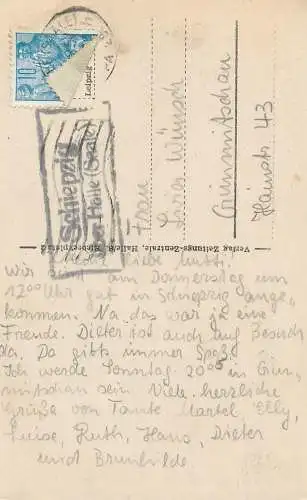 10
Leipzig
Schiepzig
über Halle (Saale)
Frau
Wünsch
Hainstr. 43
Verlag Zeitungs-Zentrale, Halle/S.
Meine liebe Mutti!
Wir sind am Donnerstag um
12⁰⁰ Uhr gut in Schiepzig ange-
kommen. Na das war ja eine
Freude. Dieter ist auch auf Besuch
da. Da gibts immer Spaß.
Ich werde Sonntag 20⁰⁰ in Crim-
mitschau sein. Viele herzliche
Grüße von Tante Martel, Elly,
Luise, Ruth, Hans, Dieter
und Brunhilde.